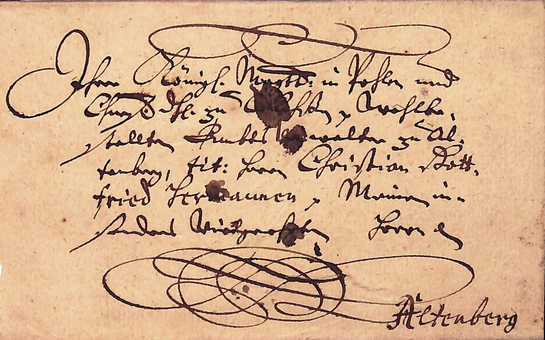 Ihrer Königl. Maytt: in Pohlen und
Churf. dhl. zu Sachßen, Wohlbe-
stallten Ambts Verwalter zu Al-
tenberg, tit: Herrn Christian Gott-
fried Hermannen, Meinem in-
sonders Herrn
Altenberg